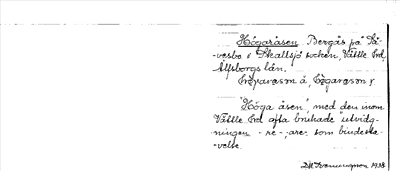 Högaråsen Bergås på Sä-
vesbo i Skallsjö socken, Vättle hd,
Älfsborgs län.
"Höga åsen", med den inom
Vättle hd ofta brukade utvidg-
ningen -re-, are- som bindesta-
velse.
1938